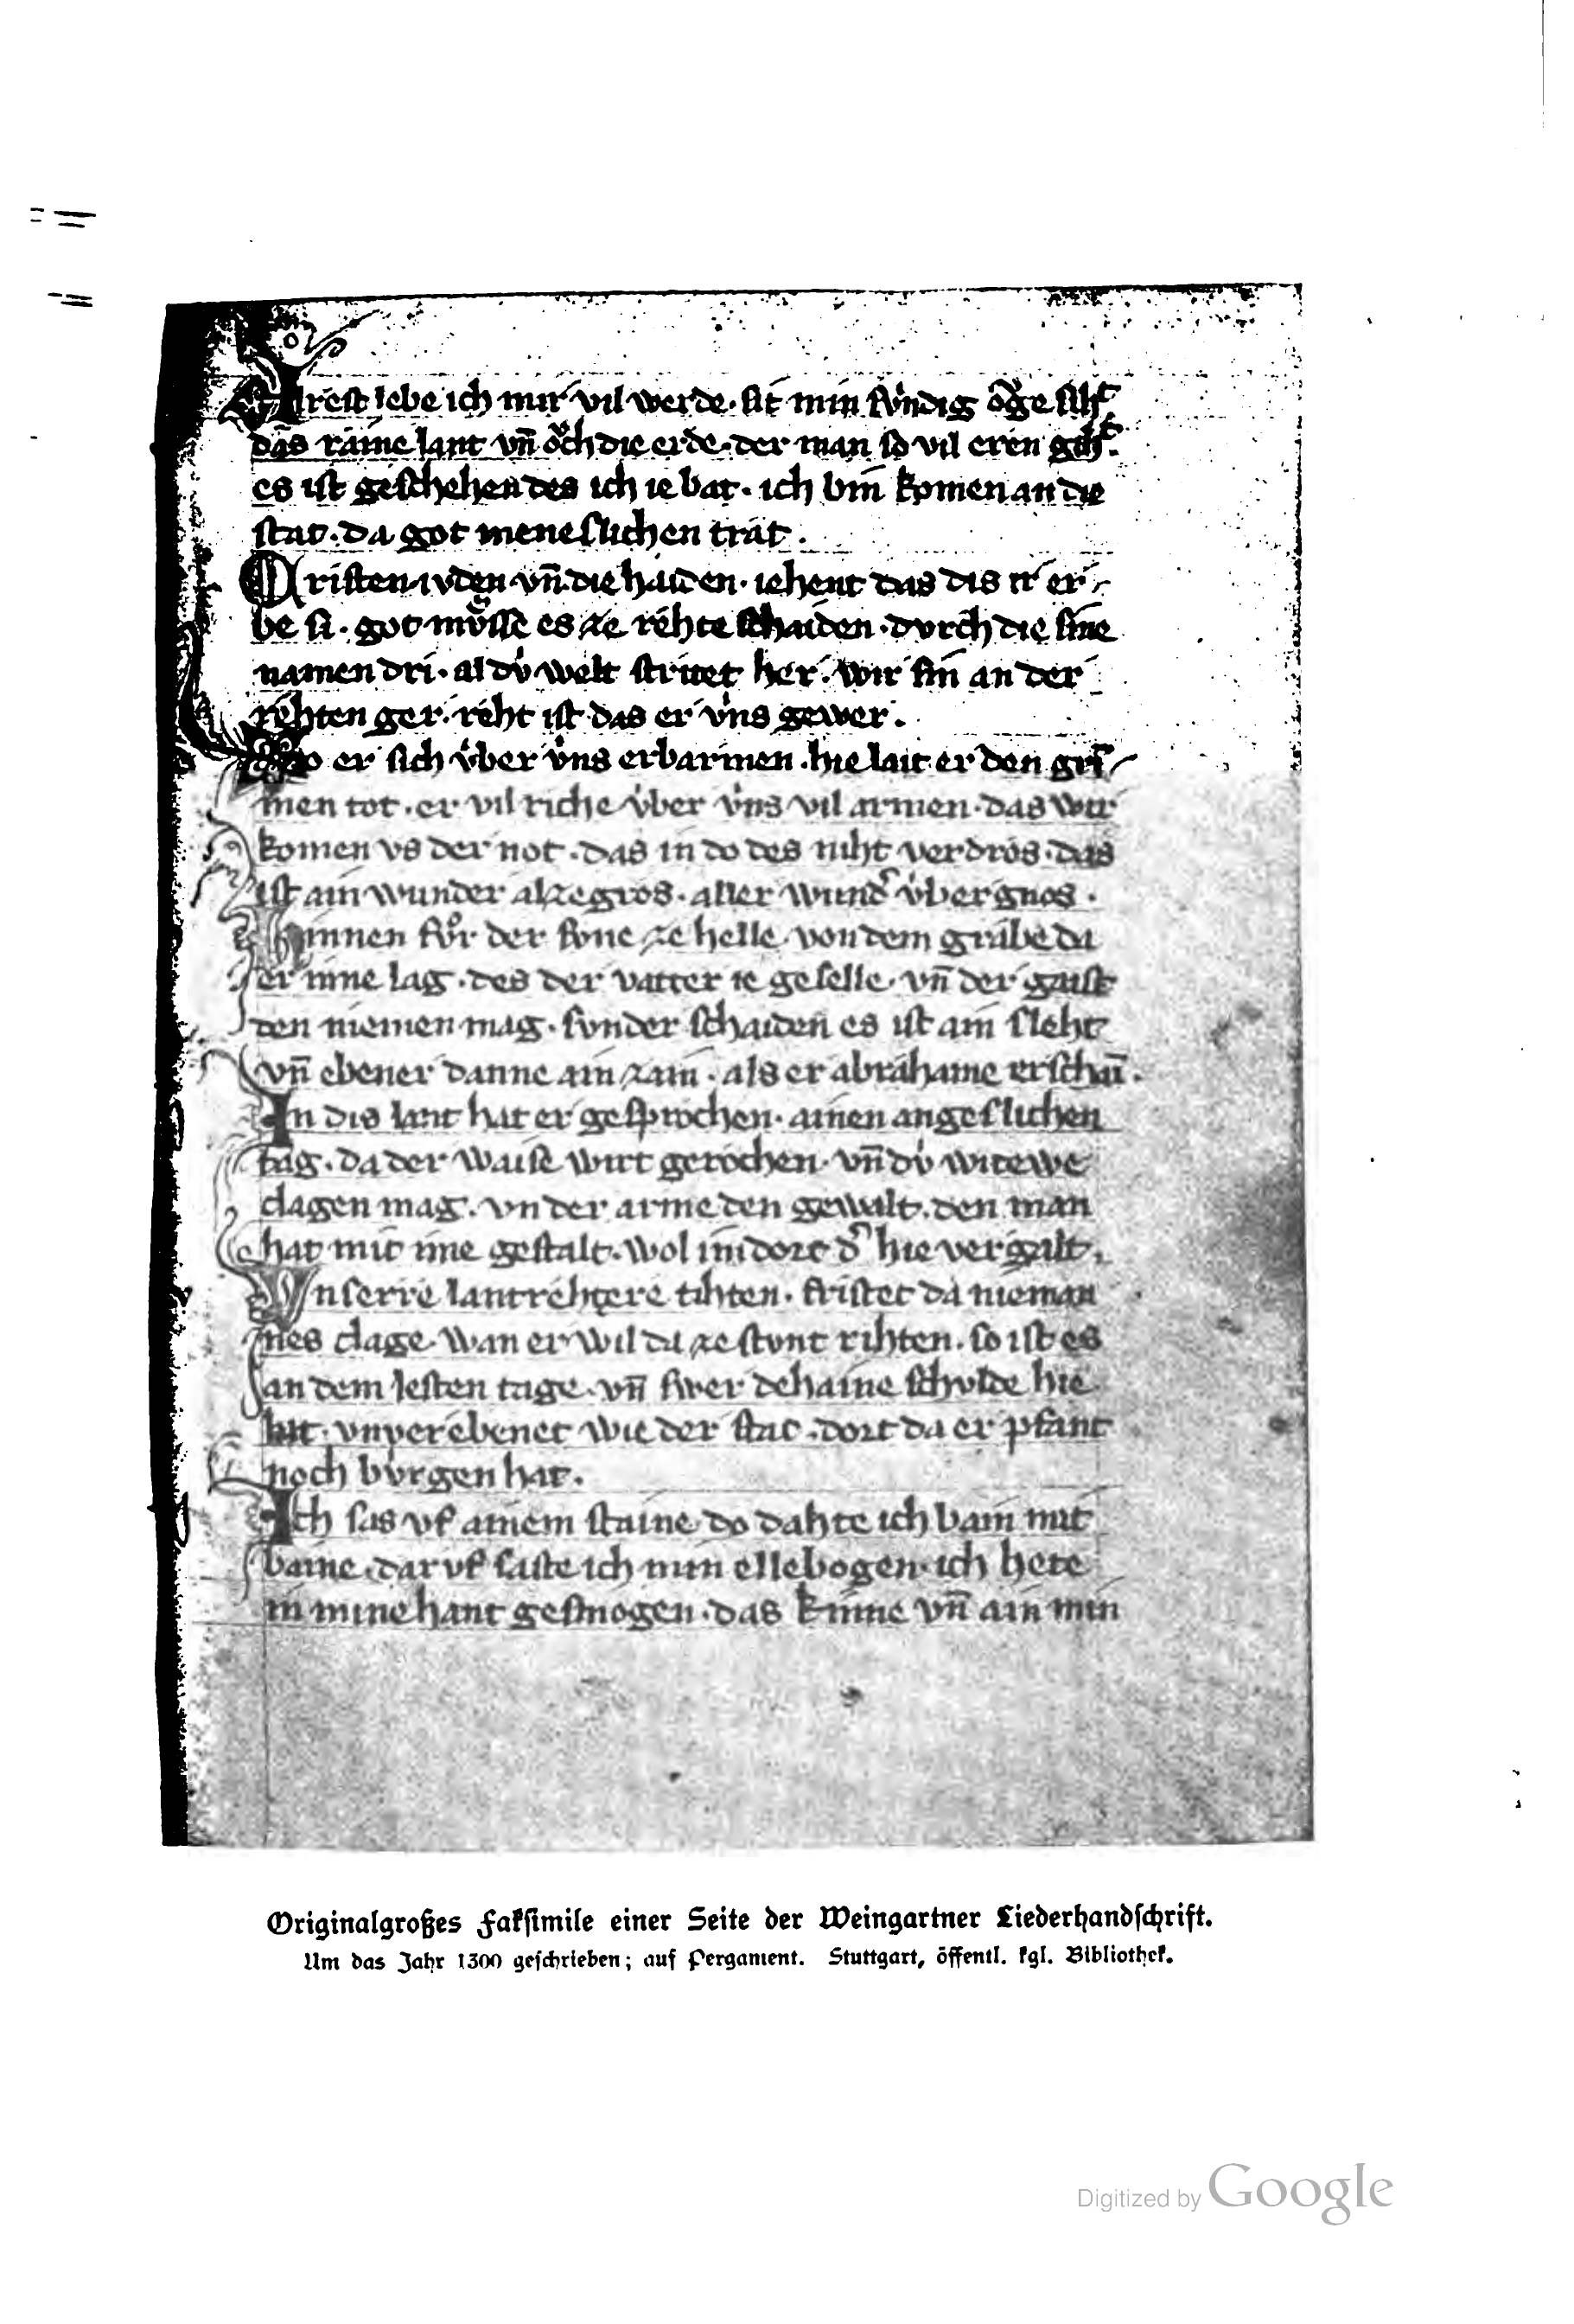 Alrest lebe ich mir vil werde · sit min sv́ndig oͮge siht ·
das raine lant vn̄ oͮch die erde · der man so vil eren giht ·
es ist geschehen des ich ie bat · ich bin komen an die
stat · da got meneslichen trat ·
Cristen ivden vn̄ die haiden · iehent das dis ir er⸗
be si · got moͤsse es ze rehte schaiden · dvrch die sine
namen dri · al dv́ welt stritet her · wir sin an der
rehten ger · reht ist das er v́ns gewer ·
Do er sich v́ber v́ns erbarmen · hie lait er den gri̅⸗
men tot · er vil riche v́ber v́ns vil armen · das wir
komen vs der not · das in do des niht verdros · das
ist ain wunder alze gros · aller wundˀ v́ber gnos ·
Hinnen fvͦr der svne ze helle · von dem grabe da
er inne lag · des der vatter ie geselle · vn̄ der gaist
den niemen mag · svnder schaiden es ist ain sleht
vn̄ ebener danne ain zain · als er abrahame erschai̅ ·
In dis lant hat er gesprochen · ainen angeslichen
tag · da der waise wirt gerochen · vn̄ dv́ witewe
clagen mag · vn der arme den gewalt · den man
hat mit ime gestalt · wol im dort dˀ hie vergalt ·
Vnserre lantrehtere tihten · fristet da nieman
nes clage · wan er wil da ze stvnt rihten · so ist es
an dem lesten tage · vn̄ swer dehaine schvlde hie
lat · vnverebenet wie der stat · dort da er pfant
noch bv́rgen hat ·
Ich sas vf ainem staine do dahte ich bain mit
baine · dar vf saste ich min ellebogen · ich hete
in mine hant gesmogen · das kinne vn̄ ain min
Originalgroßes Faksimile einer Seite der Weingartner Liederhandschrift.
Um das Jahr 1300 geschrieben; auf Pergament. Stuttgart, öffentl. kgl. Bibliothek.
Digitized by Google